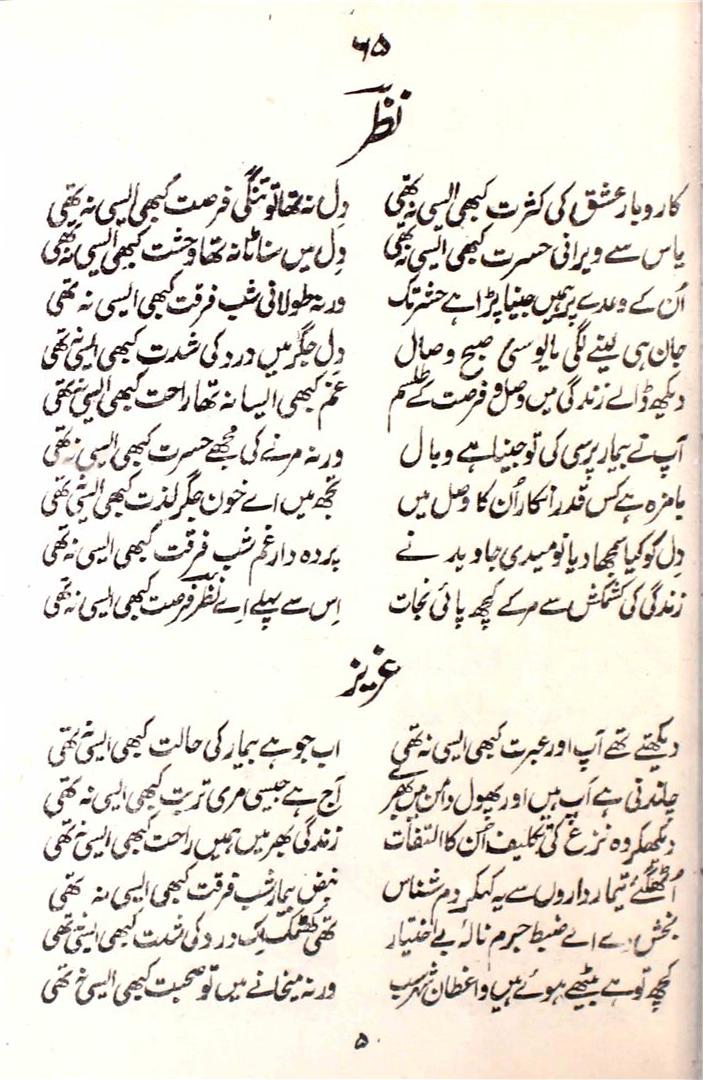 ۶۵
نظر
کاروبار عشق کی کثرت کبھی ایسی نہ تھی دل نہ تھا تو تنگی فرصت کبھی ایسی نہ تھی
یاس سے ویرانی حسرت کبھی ایسی نہ تھی دل میں سناٹا نہ تھا وحشت کبھی ایسی نہ تھی
اُن کے وعدے پر ہمیں جینا پڑا ہے حشر تک ورنہ طولانی شب فرقت کبھی ایسی نہ تھی
جان ہی لینے لگی مایوسیٔ صبح وصال دل جگر میں درد کی شدت کبھی ایسی نہ تھی
دیکھ ڈالے زندگی میں وصل و فرصت کے طلسم غم کبھی ایسا نہ تھا راحت کبھی ایسی نہ تھی
آپ نے بیمار پرسی کی تو جینا ہے وبال ورنہ مرنے کی مجھے حسرت کبھی ایسی نہ تھی
بامزہ ہے کس قدر انکار اُن کا وصل میں تجھ میں اے خون جگر لذت کبھی ایسی نہ تھی
دِل کو کیا سمجھا دیا نومیدی جاوید نے پردہ دار غم شب فرقت کبھی ایسی نہ تھی
زندگی کی کشمکش سے مر کے کچھ پائی نجات اِس سے پہلے اے نظر فرصت کبھی ایسی نہ تھی
عزیز
دیکھتے تھے آپ اور عبرت کبھی ایسی نہ تھی اب جو ہے بیمار کی حالت کبھی ایسی نہ تھی
چاندنی ہے آپ ہیں اور پھول دامن میں بھرے آج ہے جیسی مری تربت کبھی ایسی نہ تھی
دیکھکر وہ نزع کی تکلیف اُن کا التفات زندگی بھر میں ہمیں راحت کبھی ایسی نہ تھی
اُٹھ گئے تیمارداروں سے یہ کہکر دم شناس نبض بیمار شب فرقت کبھی ایسی نہ تھی
بخش دے اے ضبط جرم نالۂ بے اختیار تھی کھٹک اک درد کی شدت کبھی ایسی نہ تھی
کچھ تو ہے بیٹھے ہوئے ہیں واعظان شہر سب ورنہ میخانے میں تو صحبت کبھی ایسی نہ تھی
۵